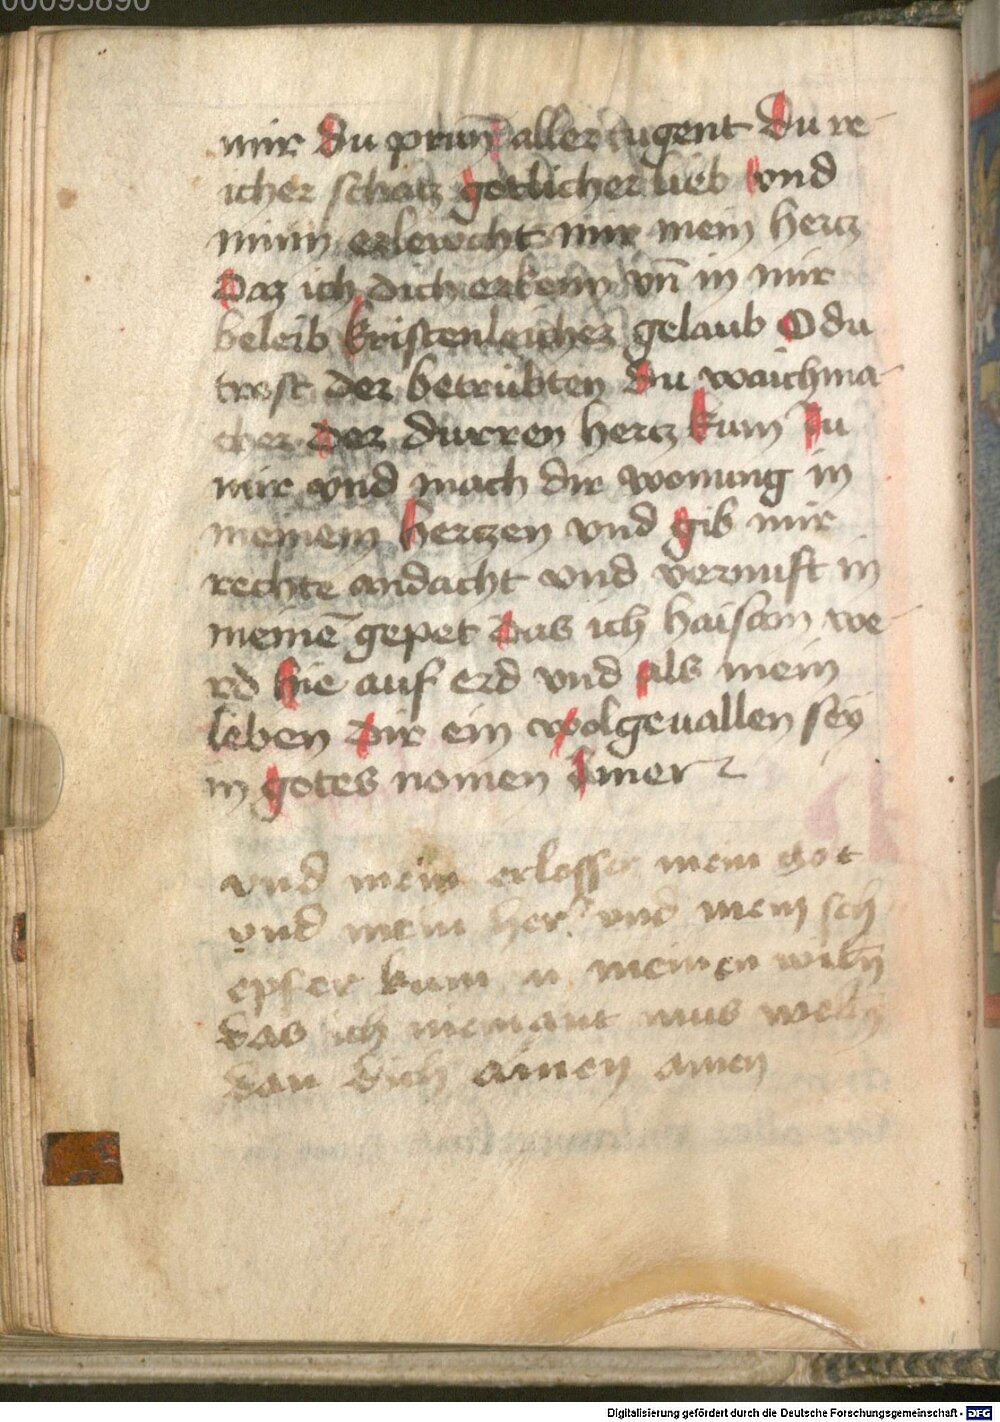 00095890
mir du prun̄ aller tugent du re-
icher schatz gotlicher lieb vnd
minn erlewcht mir mein hertz
Daz ich dich erkenn vn̄ in mir
beleib kristenleicher gelaub O du
trost der betrübten du waichma-
cher der durren hertz kum zu
mir vnd mach dir wonung in
meinem hertzen vnd gib mir
rechte andacht vnd vernuft in
meinē gepet das ich haisam we-
rd hie auf erd vnd als mein
leben dir ein wolgeuallen sey
in gotes nomen Amer
vnd mein erlosser mein got
vnd mein her vnd mein sch
epfer kum meinen
das ich niemant mus
dan dich ainen amen
Digitalisierung gefördert durch die Deutsche Forschungsgemeinschaft - DFG